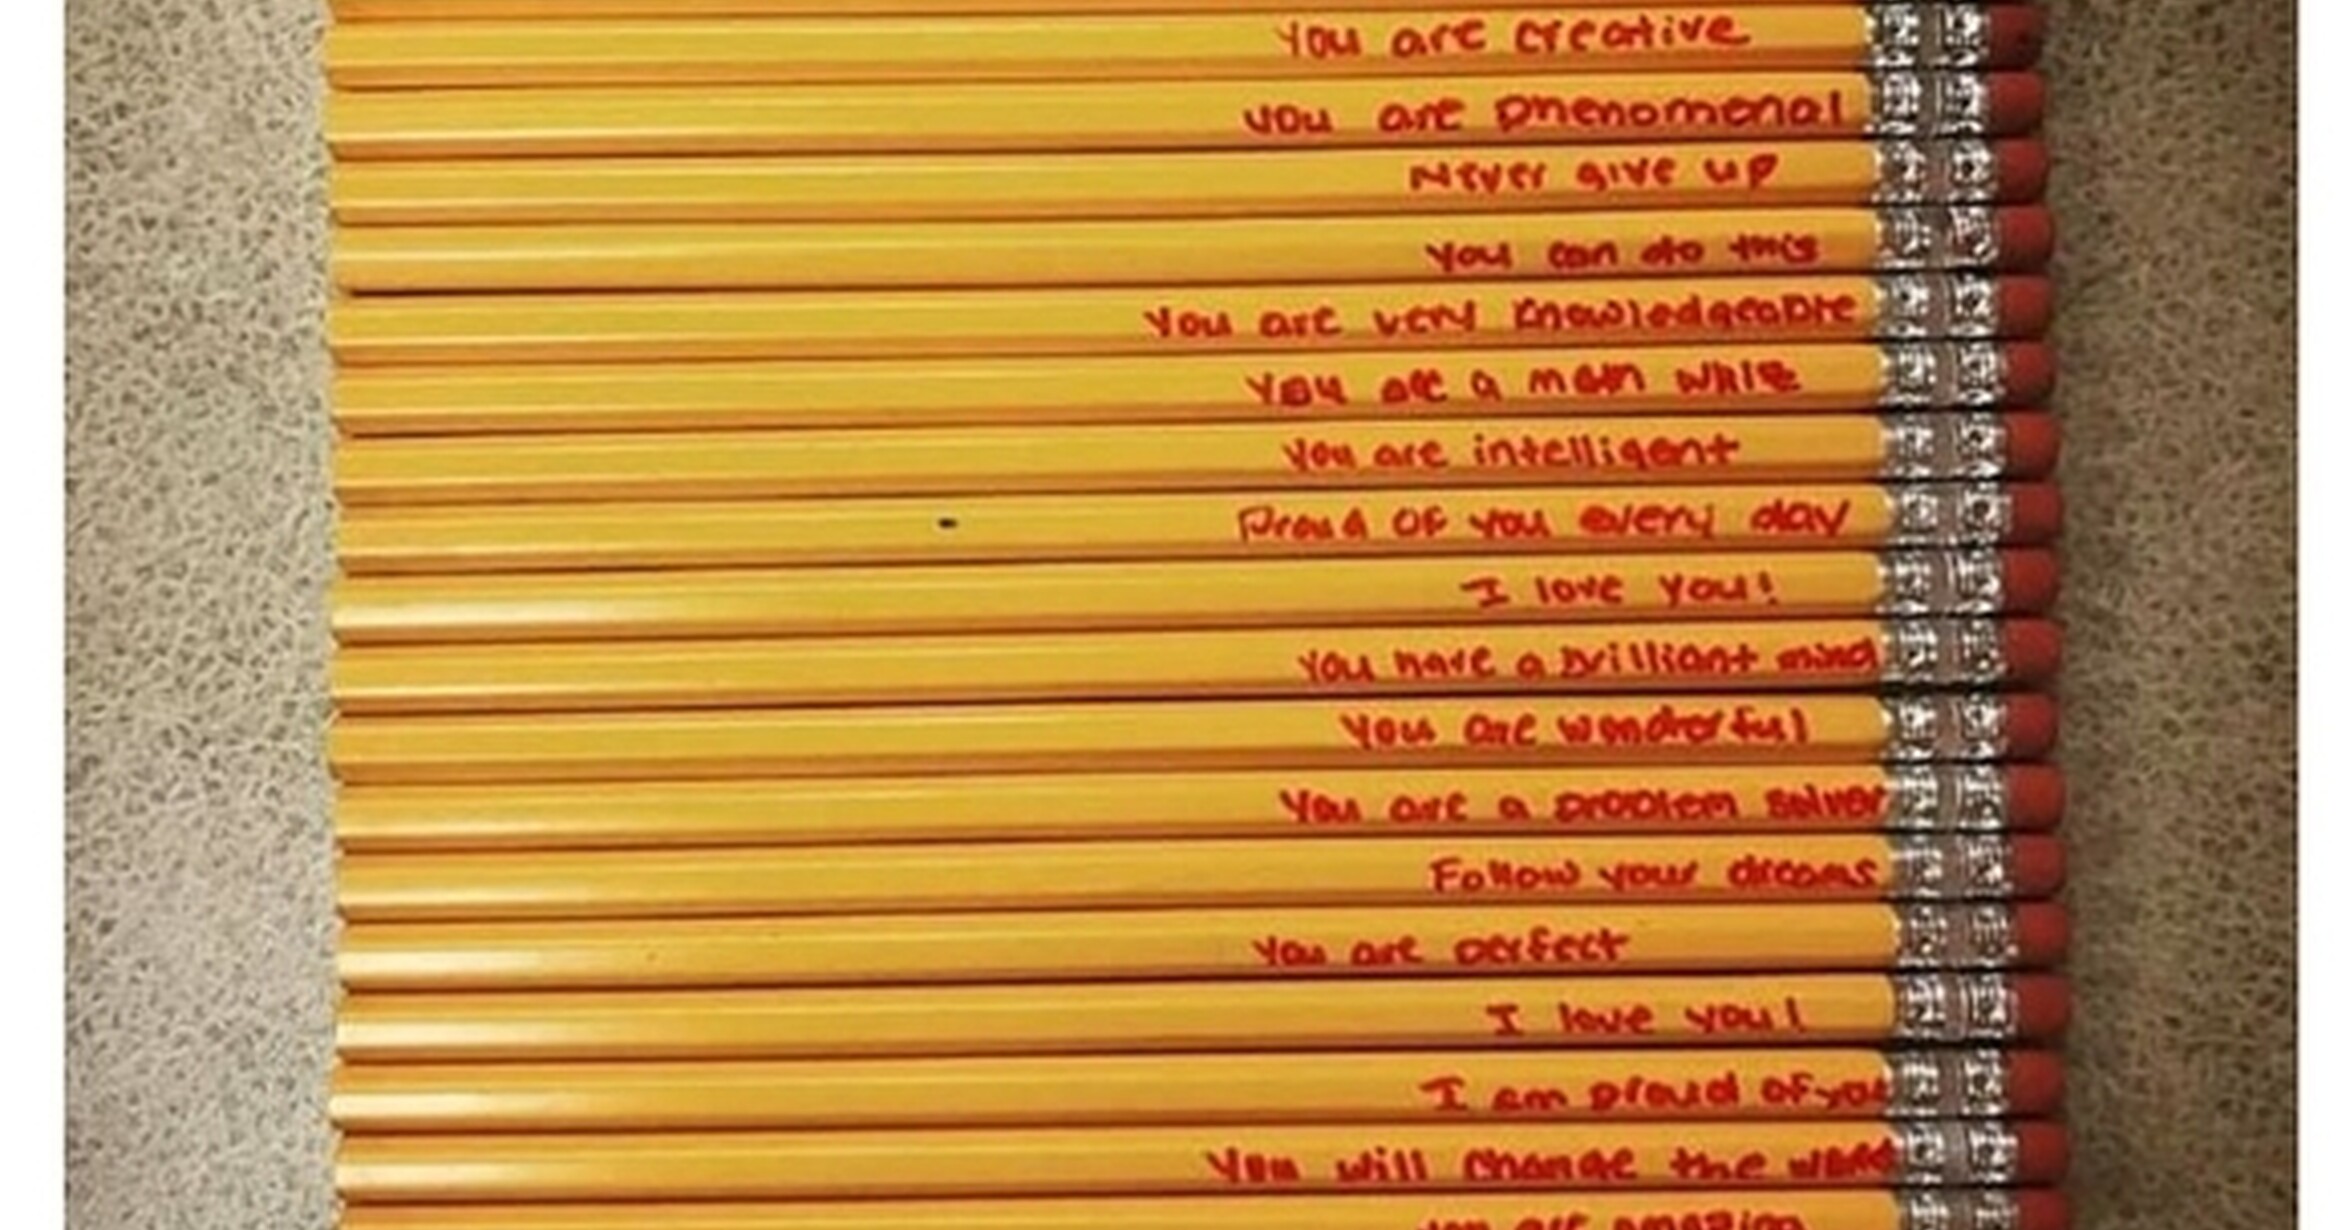 You are creative
you are phenomenal
Never give up
You can do this
You are very knowledgeable
You are a math whiz
You are intelligent
Proud of you every day
I love you!
You have a brilliant mind
You are wonderful
You are a problem solver
Follow your dreams
You are perfect
I love you!
I am proud of you
You will change the world
you are amazing